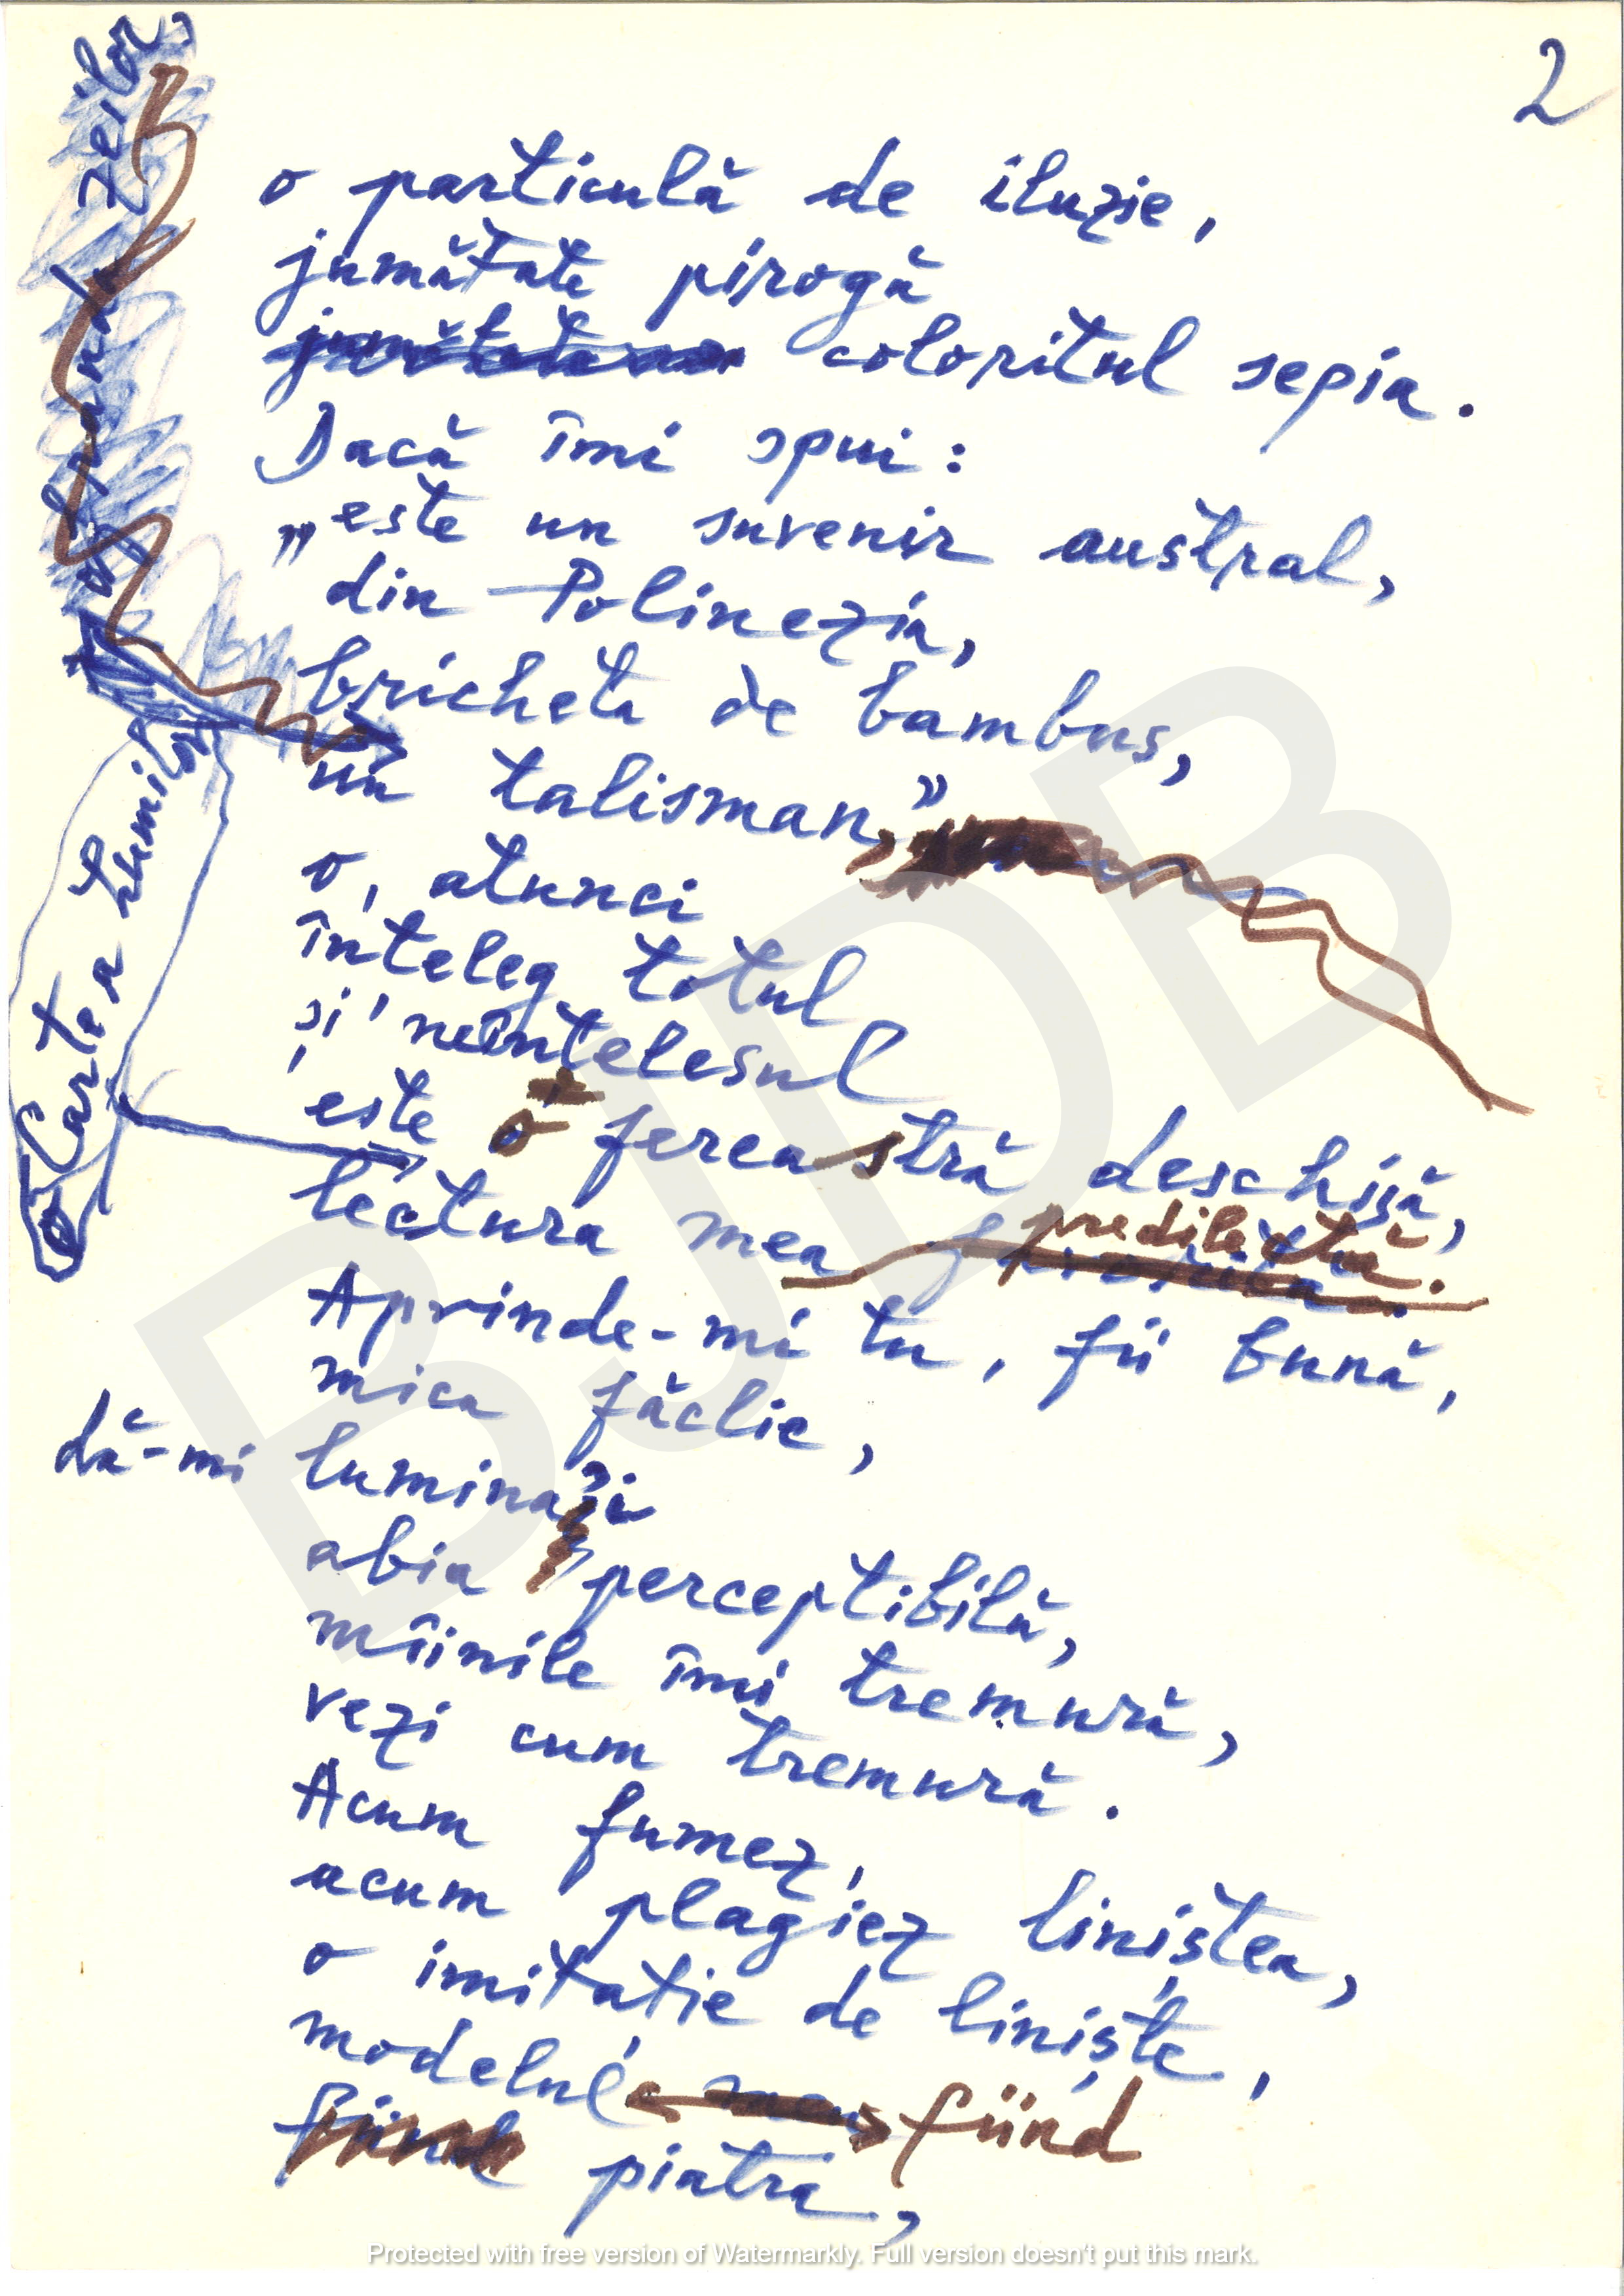 2
o particulă de iluzie,
jumătate pirogă
jumătate coloritul sepia.
Dacă îmi spui:
„este un suvenir austral,
din Polinezia,
bricheta de bambus,
un talisman,”
o, atunci
înțeleg totul
și neînțelesul
este o fereastră deschisă,
Cartea Lumilor
lectura mea predilectă.
Aprinde-mi tu, fii bună,
mica făclie,
dă-mi lumina și
abia perceptibilă,
mîinile îmi tremură,
vezi cum tremură.
Acum fumez,
acum plagiez liniștea,
o imitație de liniște,
modelul fiind
fiind piatra,
zeilor,
BJDB
Protected with free version of Watermarkly. Full version doesn't put this mark.